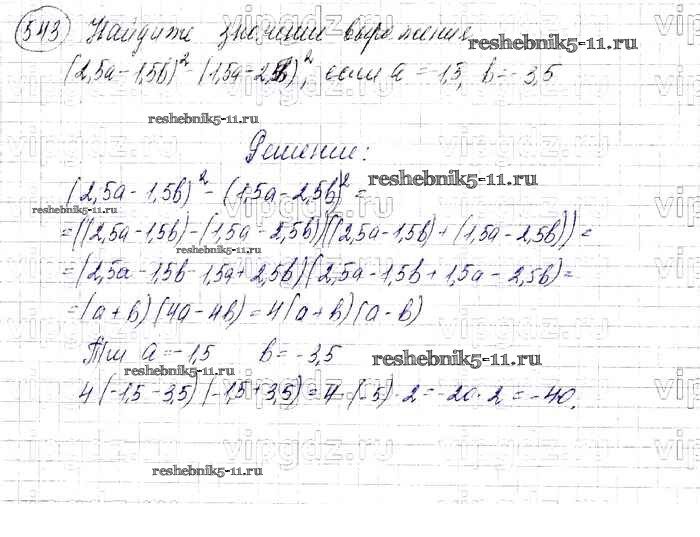 543 Найдите значение выражения reshebnik5-11.ru
(2,5a-1,5b)² - (1,5a-2,5b)², если a = -1,5, b = -3,5
reshebnik5-11.ru
Решение:
(2,5a - 1,5b)² - (1,5a - 2,5b)² = reshebnik5-11.ru
reshebnik5-11.ru
=((2,5a-1,5b)-(1,5a-2,5b))((2,5a-1,5b)+(1,5a-2,5b))=
reshebnik5-11.ru
=(2,5a-1,5b-1,5a+2,5b)(2,5a-1,5b+1,5a-2,5b)=
=(a+b)(4a-4b)=4(a+b)(a-b)
При a=-1,5 b=-3,5 reshebnik5-11.ru
reshebnik5-11.ru
4(-1,5-3,5)(-1,5+3,5)=4·(-5)·2=-20·2=-40.
reshebnik5-11.ru